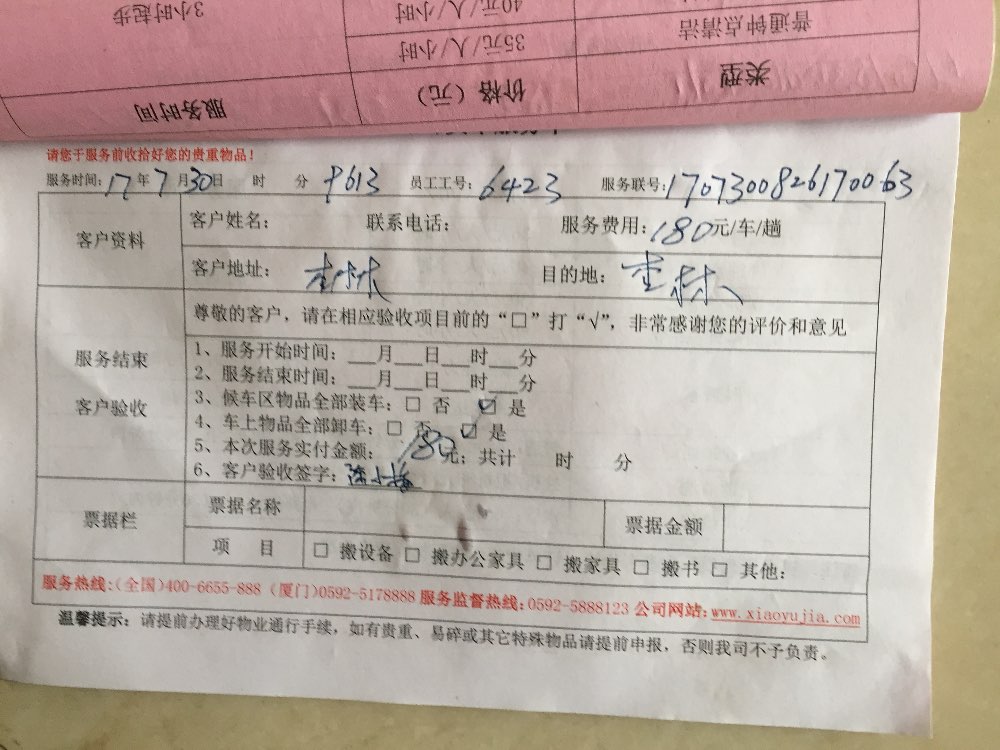 3小时起步
40元/人/小时
普通钟点清洁
35元/人/小时
服务时间
价格（元）
类型
请您于服务前收拾好您的贵重物品！
服务时间：17年7月30日 时 分 9613 员工工号：6423 服务联号：1707300826170063
客户资料
客户姓名： 联系电话： 服务费用：180元/车/趟
客户地址：杏林 目的地：杏林
尊敬的客户，请在相应验收项目前的“□”打“√”，非常感谢您的评价和意见
服务结束
客户验收
1、服务开始时间：___月___日___时___分
2、服务结束时间：___月___日___时___分
3、候车区物品全部装车：□ 否 ☑ 是
4、车上物品全部卸车：□ 否 ☑ 是
5、本次服务实付金额：180元；共计 时 分
6、客户验收签字：
票据栏
票据名称 票据金额
项 目 □ 搬设备 □ 搬办公家具 □ 搬家具 □ 搬书 □ 其他：
服务热线：(全国)400-6655-888 (厦门)0592-5178888 服务监督热线：0592-5888123 公司网站：www.xiaoyujia.com
温馨提示：请提前办理好物业通行手续，如有贵重、易碎或其它特殊物品请提前申报，否则我司不予负责。